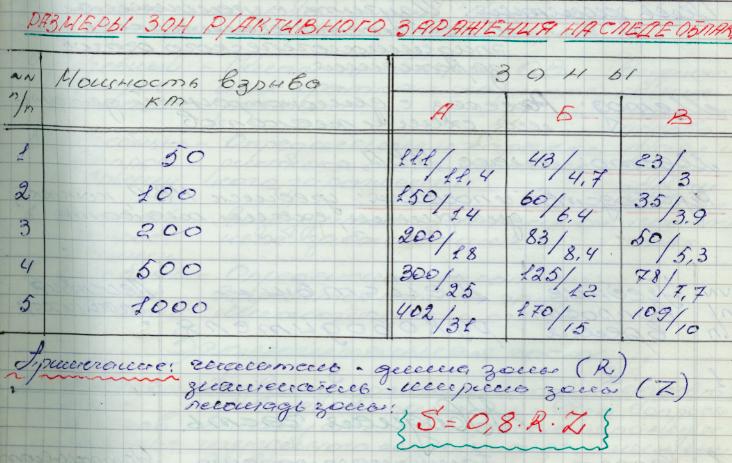 РАЗМЕРЫ ЗОН Р/АКТИВНОГО ЗАРАЖЕНИЯ НА СЛЕДЕ ОБЛАК
№№ п/п Мощность взрыва кт ЗОНЫ
А Б В
1 50 111/11,4 43/4,7 23/3
2 100 150/14 60/6,4 35/3,9
3 200 200/18 83/8,4 50/5,3
4 500 300/25 125/12 78/7,7
5 1000 402/31 170/15 109/10
Примечание: числитель - длина зоны (R)
знаменатель - ширина зоны (Z)
площадь зоны:
S = 0,8·R·Z